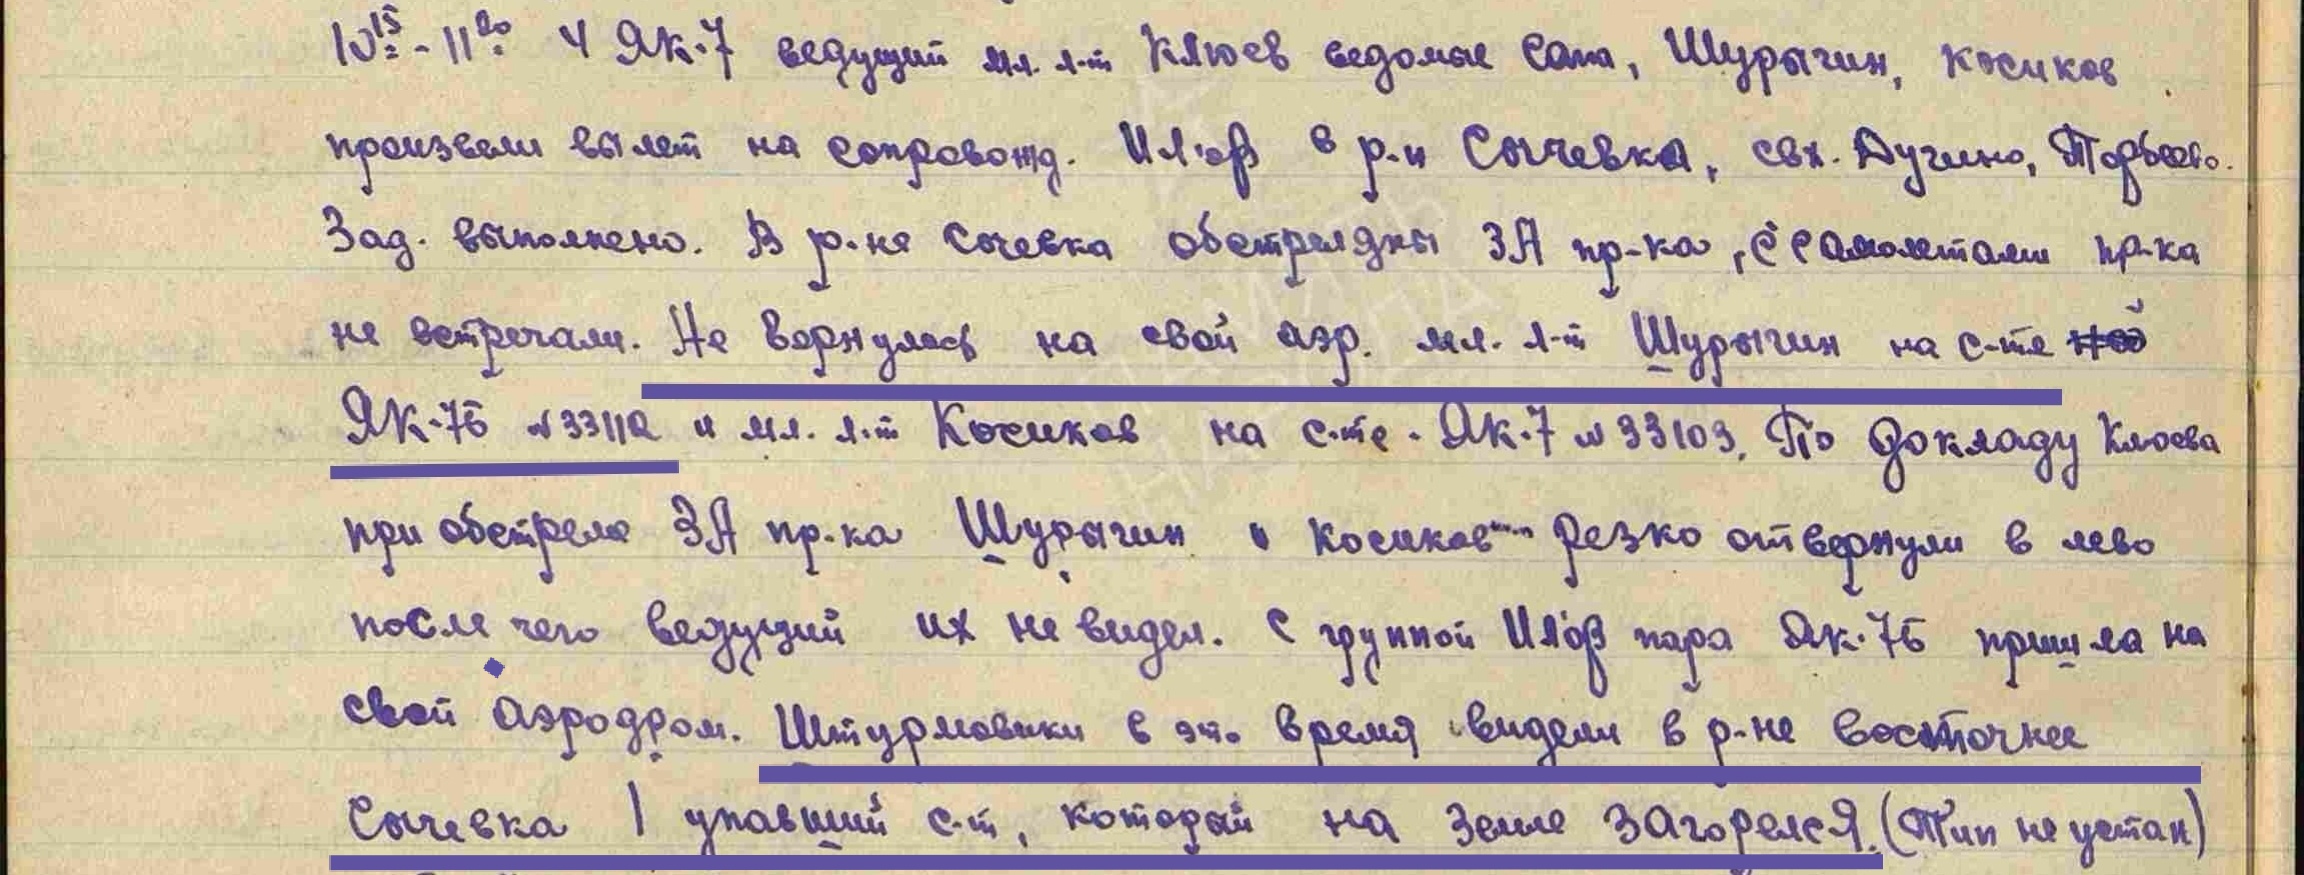 10¹⁵ - 11²⁰ 4 Як-7 ведущий мл. л-т Клюев ведомые Сапа, Шурыгин, Косиков
произвели вылет на сопровожд. Ил'ов в р-н Сычевка, свх. Дугино,
Зад. выполнено. В р-не Сычевка обстреляны ЗА пр-ка, с самолетами пр-ка
не встречали. Не вернулось на свой аэр. мл. л-т Шурыгин на с-те
Як-7б № 33112 и мл. л-т Косиков на с-те - Як-7 № 33103. По докладу Клюева
при обстреле ЗА пр-ка Шурыгин и Косиков резко отвернули в лево
после чего ведущий их не видел. С группой Ил'ов пара Як-7б пришла на
свой аэродром. Штурмовики в это время видели в р-не восточнее
Сычевка 1 упавший с-т, который на земле загорелся. (Тип не устан)